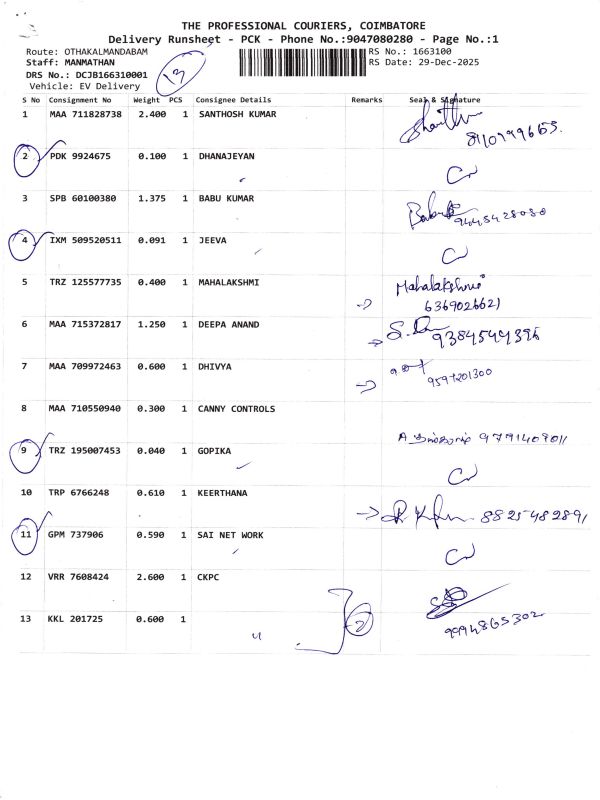 THE PROFESSIONAL COURIERS, COIMBATORE
Delivery Runsheet - PCK - Phone No.:9047080280 - Page No.:1
Route: OTHAKALMANDABAM RS No.: 1663100
Staff: MANMATHAN RS Date: 29-Dec-2025
DRS No.: DCJB166310001 13
Vehicle: EV Delivery
S No Consignment No Weight PCS Consignee Details Remarks Seal & Signature
1 MAA 711828738 2.400 1 SANTHOSH KUMAR
8110799663.
2 PDK 9924675 0.100 1 DHANAJEYAN
3 SPB 60100380 1.375 1 BABU KUMAR
9445428080
4 IXM 509520511 0.091 1 JEEVA
5 TRZ 125577735 0.400 1 MAHALAKSHMI Mahalakshmi
6369026621
6 MAA 715372817 1.250 1 DEEPA ANAND 9384544396
7 MAA 709972463 0.600 1 DHIVYA
9597201300
8 MAA 710550940 0.300 1 CANNY CONTROLS
9791409011
9 TRZ 195007453 0.040 1 GOPIKA
10 TRP 6766248 0.610 1 KEERTHANA
8825482891
11 GPM 737906 0.590 1 SAI NET WORK
12 VRR 7608424 2.600 1 CKPC
13 KKL 201725 0.600 1
9994865302